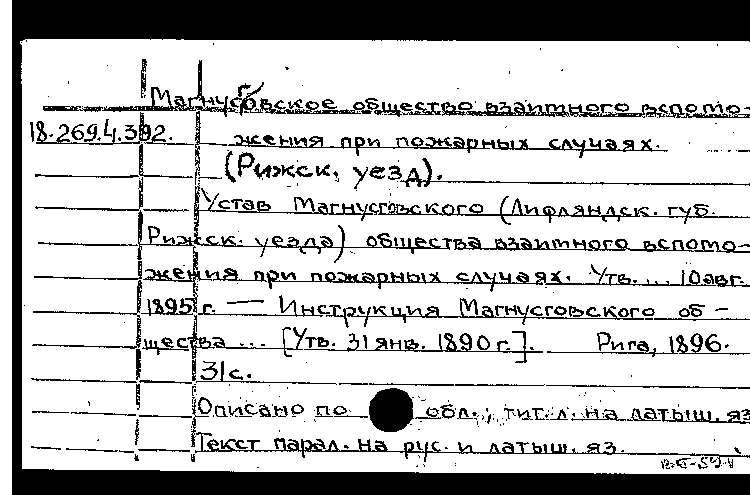 Магнусговское общество взаимного вспомо-
18.269.4.392. жения при пожарных случаях.
(Рижск. уезд).
Устав Магнусговского (Лифляндск. губ.
Рижск. уезда) общества взаимного вспомо-
жения при пожарных случаях. Утв. ... 10 авг.
1895 г. — Инструкция Магнусговского об-
щества ... [Утв. 31 янв. 1890 г.]. Рига, 1896.
31 с.
Описано по обл.; тит. л. на латыш. яз
Текст парал. на рус. и латыш. яз.